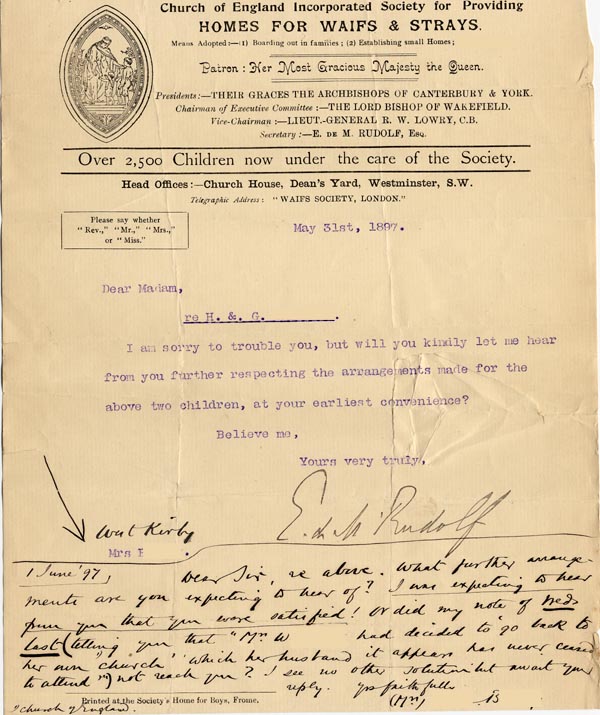 Church of England Incorporated Society for Providing
HOMES FOR WAIFS & STRAYS.
Means Adopted:—(1) Boarding out in families; (2) Establishing small Homes;
Patron: Her Most Gracious Majesty the Queen.
Presidents:—THEIR GRACES THE ARCHBISHOPS OF CANTERBURY & YORK.
Chairman of Executive Committee:—THE LORD BISHOP OF WAKEFIELD.
Vice-Chairman:—LIEUT.-GENERAL R. W. LOWRY, C.B.
Secretary:—E. DE M. RUDOLF, ESQ.
Over 2,500 Children now under the care of the Society.
Head Offices:—Church House, Dean's Yard, Westminster, S.W.
Telegraphic Address: "WAIFS SOCIETY, LONDON."
Please say whether
"Rev.," "Mr.," "Mrs.,"
or "Miss."
May 31st, 1897.
Dear Madam,
re H. & G.          .
I am sorry to trouble you, but will you kindly let me hear
from you further respecting the arrangements made for the
above two children, at your earliest convenience?
Believe me,
Yours very truly,
E. de M. Rudolf
West Kirby
Mrs
1 June '97, Dear Sir, re above. What further arrange-
ments are you expecting to hear of? I was expecting to hear
from you that you were satisfied! Or did my note of Weds
last (telling you that "Mrs W had decided to "go back to
her own "church" which her husband it appears has never ceased
to attend") not reach you? I see no other solution but await your
reply. yrs faithfully
(Mrs) B
Printed at the Society's Home for Boys, Frome.
church of England.